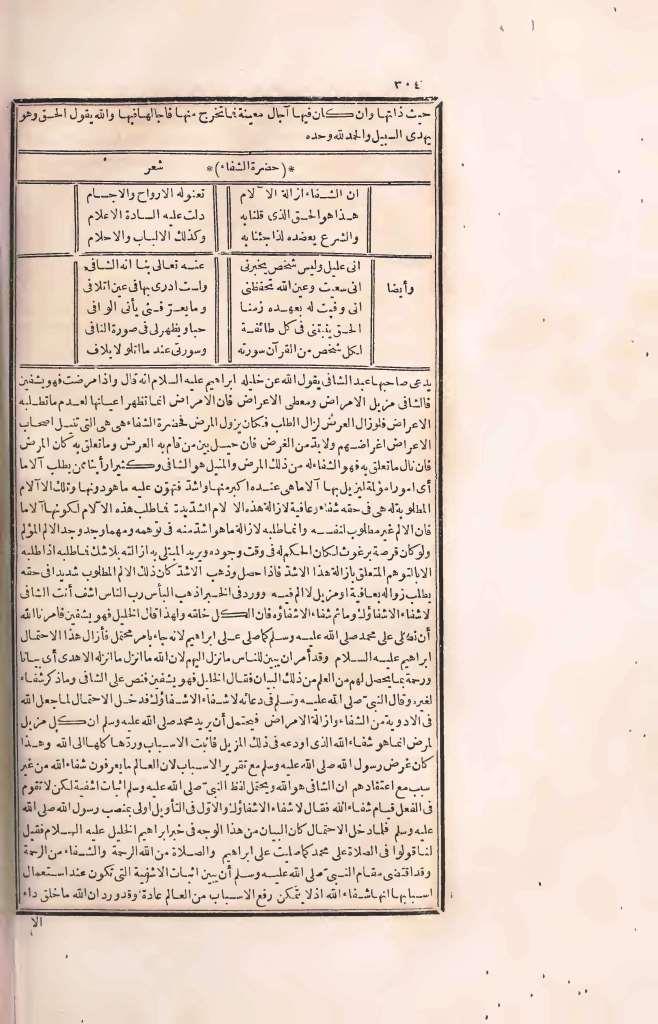 ٣٠٤
حيث ذاتها وان كان فيها آجال معينة فما تخرج منها فآجالها فيها والله يقول الحق وهو
يهدى السبيل والحمد لله وحده
*(حضرة الشفاء)* شعر
ان الشفاء ازالة الآلام تعنو له الارواح والاجسام
هذا هو الحق الذى قلنا به دلت عليه السادة الاعلام
والشرع يعضده لذا جئنا به وكذلك الالباب والاحلام
وأيضا
انى عليل وليس شخص يخبرنى عنه تعالى بنا انه الشافى
انى سعيت وعين الله تحفظنى ولست ادرى بها فى عين اتلافى
انى وفيت له بعهده زمنا وما يعرّفنى يأتى الوافى
الحق يثبتنى فى كل طائفة حبا ويظهر لى فى صورة النافى
لكل شخص من القرآن سورته وسورتى عند ما اتلو لايلاف
يدعى صاحبها عبد الشافى يقول الله عن خليله ابراهيم عليه السلام انه قال واذا مرضت فهو يشفين
فالشافى مزيل الامراض ومعطى الاعراض فان الامراض انما تظهر اعيانها لعدم ما تطلبه
الاعراض فلو زال العرض لزال الطلب فكان يزول المرض فحضرة الشفاء هى هى التى تنيل اصحاب
الاعراض اغراضهم ولابد من الغرض فان حيل بين من قام به العرض وما تعلق به كان المرض
فان نال ما تعلق به فهو الشفاء له من ذلك المرض والمنيل هو الشافى وكثيرا رأينا ممن يطلب آلاما
أى امورا مؤلمة ليزيل بها آلاما هى عنده اكبر منها واشد فتهون عليه ما هو دونها وتلك الآلام
المطلوبة له هى فى حقه شفاء وعافية لازالة هذه الآلام الشديدة فما طلب هذه الآلام لكونها آلاما
فان الالم غير مطلوب لنفسه وانما طلبه لازالة ما هو اشد منه فى توهمه ومهما وجد وجد الالم المؤلم
ولو كان قرصة برغوث لكان الحكم له فى وقت وجوده ويريد المبتلى به ازالته بلاشك فما طلبه اذا طلبه
الا بالتوهم المتعلق بازالة هذا الاشد فاذا حصل وذهب الاشد كان ذلك الالم المطلوب شديدا فى حقه
يطلب زواله بعافية او مزيل لا الم فيه وورد فى الخبر اذهب البأس رب الناس اشف أنت الشافى
لا شفاء الا شفاؤك وما ثم شفاء الا شفاؤه فان الكل خلقه ولهذا قال الخليل فهو يشفين فامرنا الله
أن نصلى على محمد صلى الله عليه وسلم كما صلى على ابراهيم لانه جاء بامر محتمل فأزال هذا الاحتمال
ابراهيم عليه السلام وقد أمر ان يبين للناس ما نزل اليهم لان الله ما انزل ما انزله الا هدى أى بيانا
ورحمة بما يحصل لهم من العلم من ذلك البيان فقال الخليل فهو يشفين فنص على الشافى وما ذكر شفاء
لغيره وقال النبىّ صلى الله عليه وسلم فى دعائه لا شفاء الا شفاؤك فدخل الاحتمال لما جعل الله
فى الادوية من الشفاء وازالة الامراض فيحتمل أن يريد محمد صلى الله عليه وسلم ان كل مزيل
لمرض انما هو شفاء الله الذى اودعه فى ذلك المزيل فاثبت الاسباب وردّها كلها الى الله وهذا
كان غرض رسول الله صلى الله عليه وسلم مع تقرير الاسباب لان العالم ما يعرفون شفاء الله من غير
سبب مع اعتقادهم ان الشافى هو الله ويحتمل لفظ النبىّ صلى الله عليه وسلم اثبات اشفية لكن لا تقوم
فى الفعل قيام شفاء الله فقال لا شفاء الا شفاؤك والاول فى التأويل اولى بمنصب رسول الله صلى الله
عليه وسلم فلما دخل الاحتمال كان البيان من هذا الوجه فى خبر ابراهيم الخليل عليه السلام فقيل
لنا قولوا فى الصلاة على محمد كما صليت على ابراهيم والصلاة من الله الرحمة والشفاء من الرحمة
وقد اقتضى مقام النبىّ صلى الله عليه وسلم أن يبين اثبات الاشفية التى تكون عند استعمال
اسبابها انها شفاء الله اذ لا يتمكن رفع الاسباب من العالم عادة وقد ورد ان الله ما خلق داء
الا